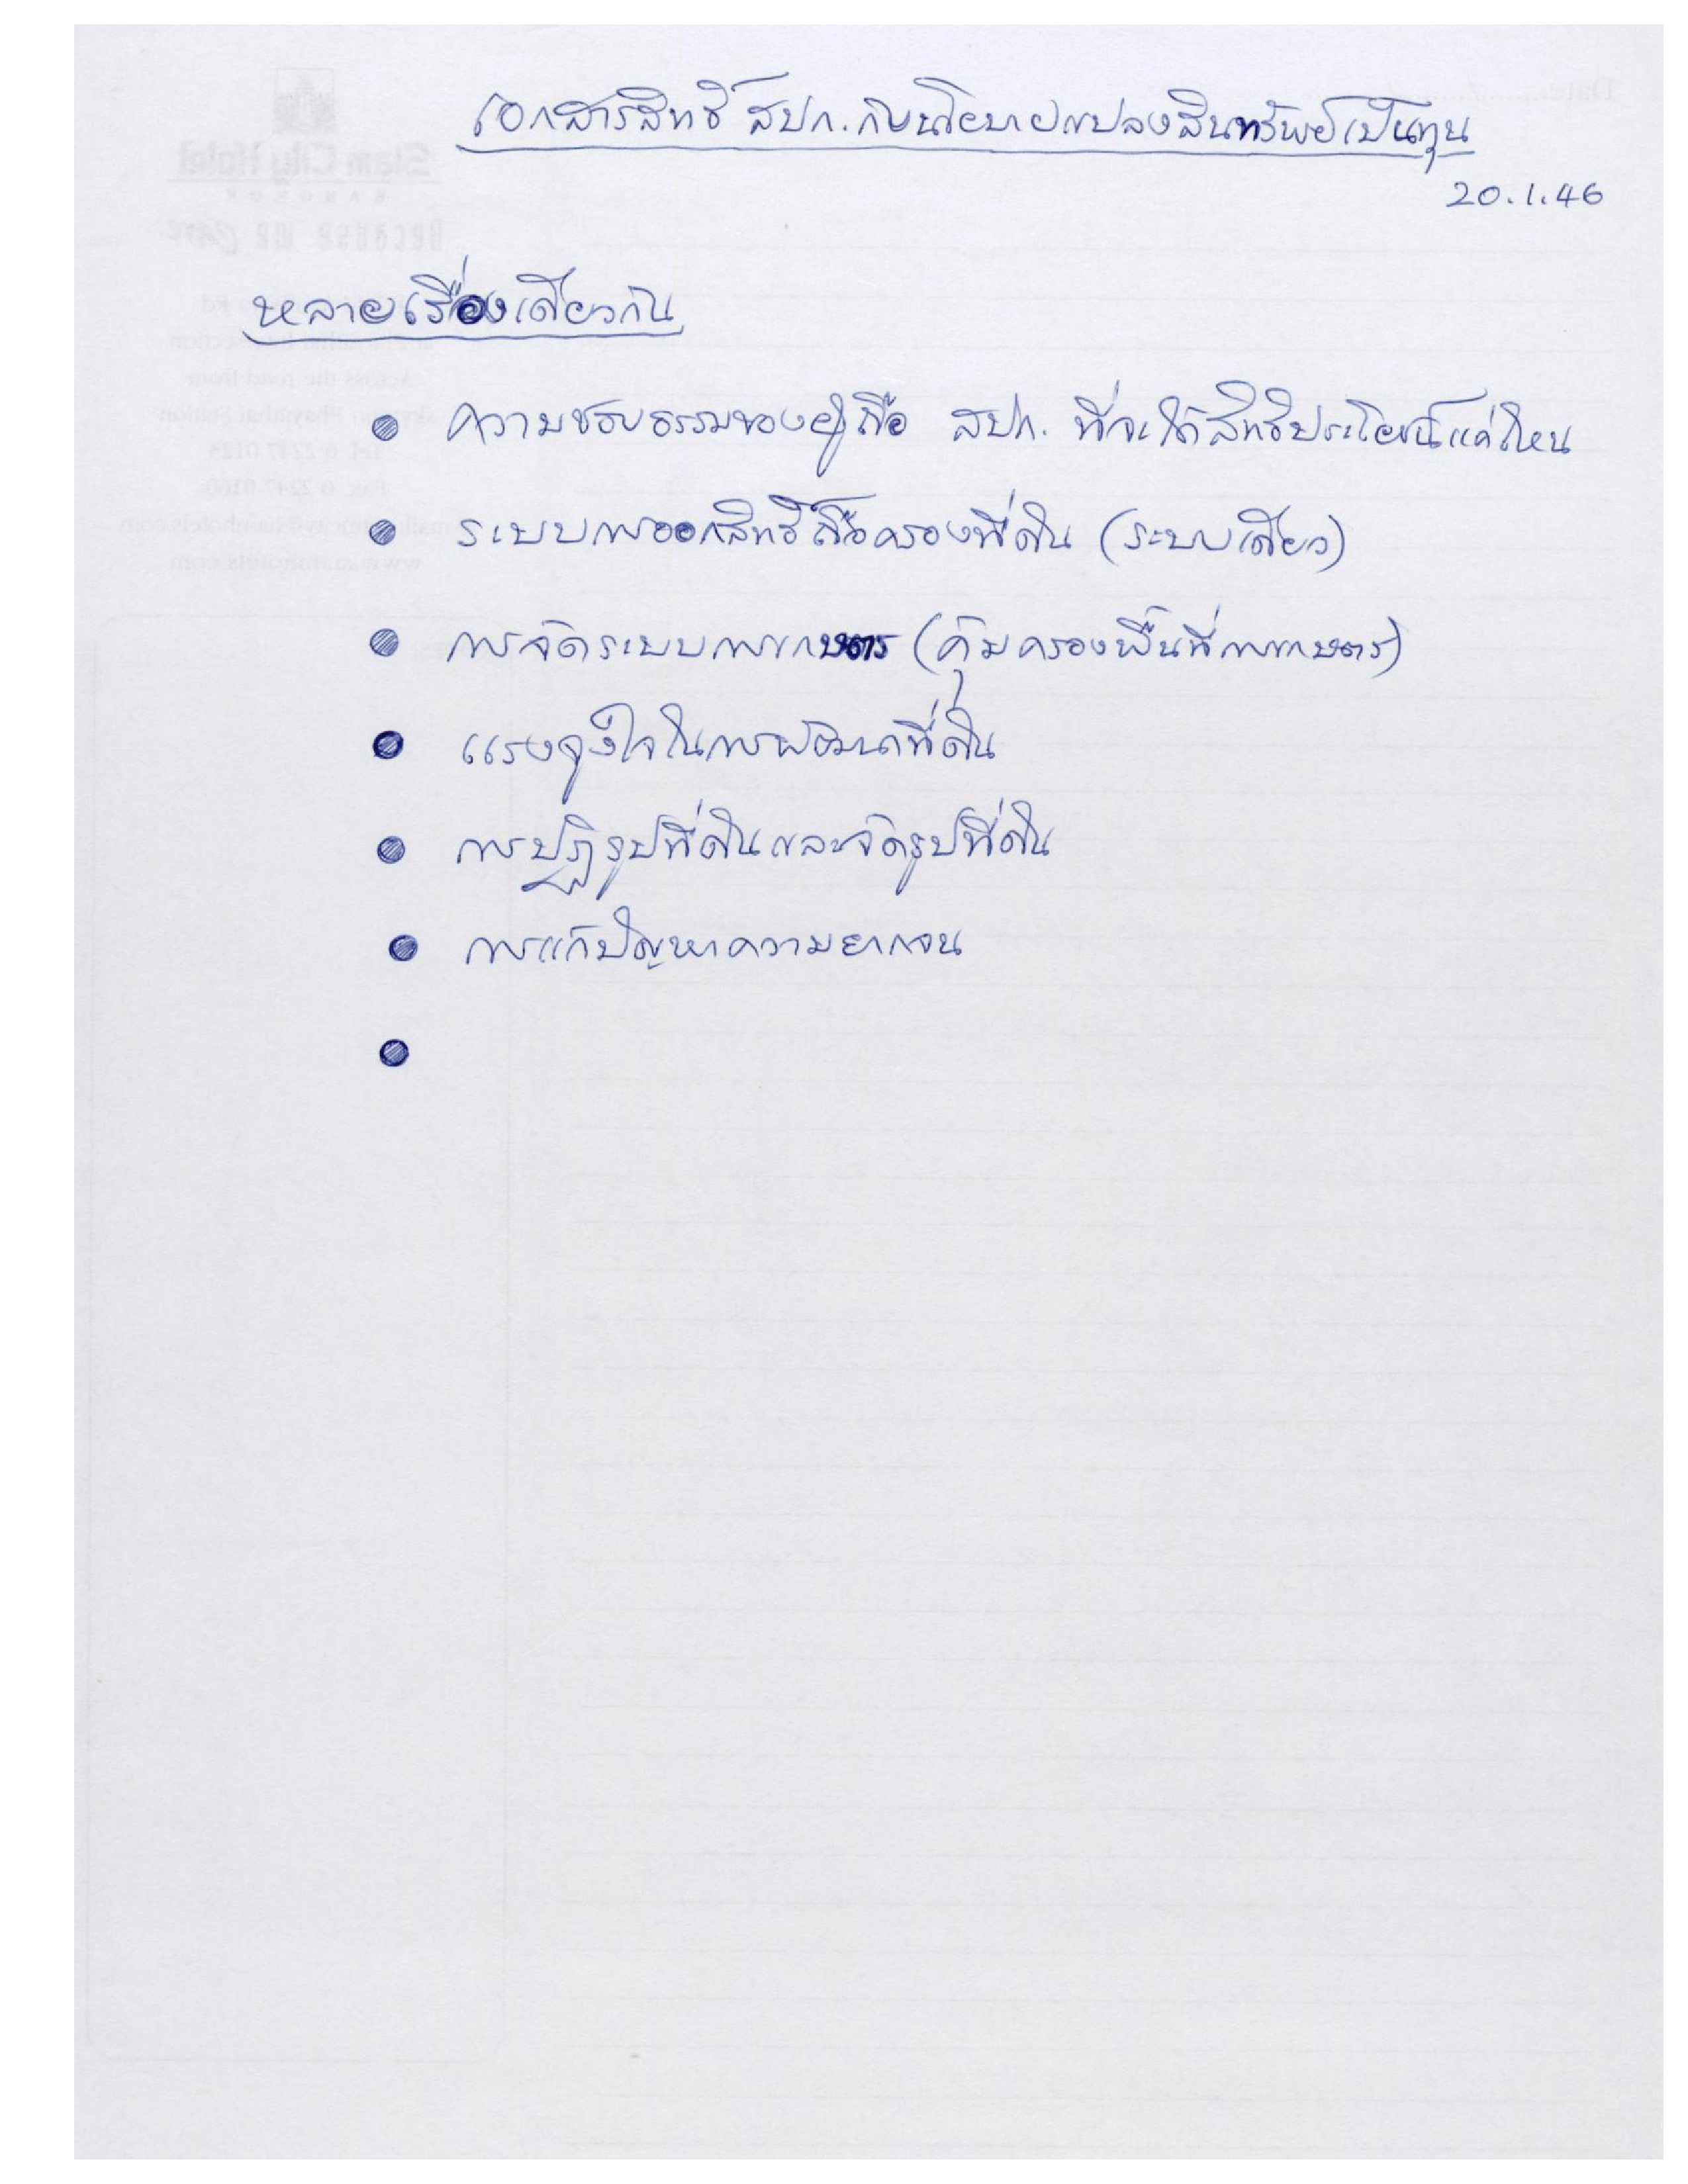 เอกสารสิทธิ์ สปก. กับนโยบายแปลงสินทรัพย์เป็นทุน
20.1.46
หลายเรื่องเดียวกัน
ความชอบธรรมของผู้ถือ สปก. ที่จะได้สิทธิประโยชน์แค่ไหน
ระบบการออกสิทธิ์ถือครองที่ดิน (ระบบเดียว)
การจัดระบบการเกษตร (คุ้มครองพื้นที่การเกษตร)
แรงจูงใจในการพัฒนาที่ดิน
การปฏิรูปที่ดินและจัดรูปที่ดิน
การแก้ปัญหาความยากจน